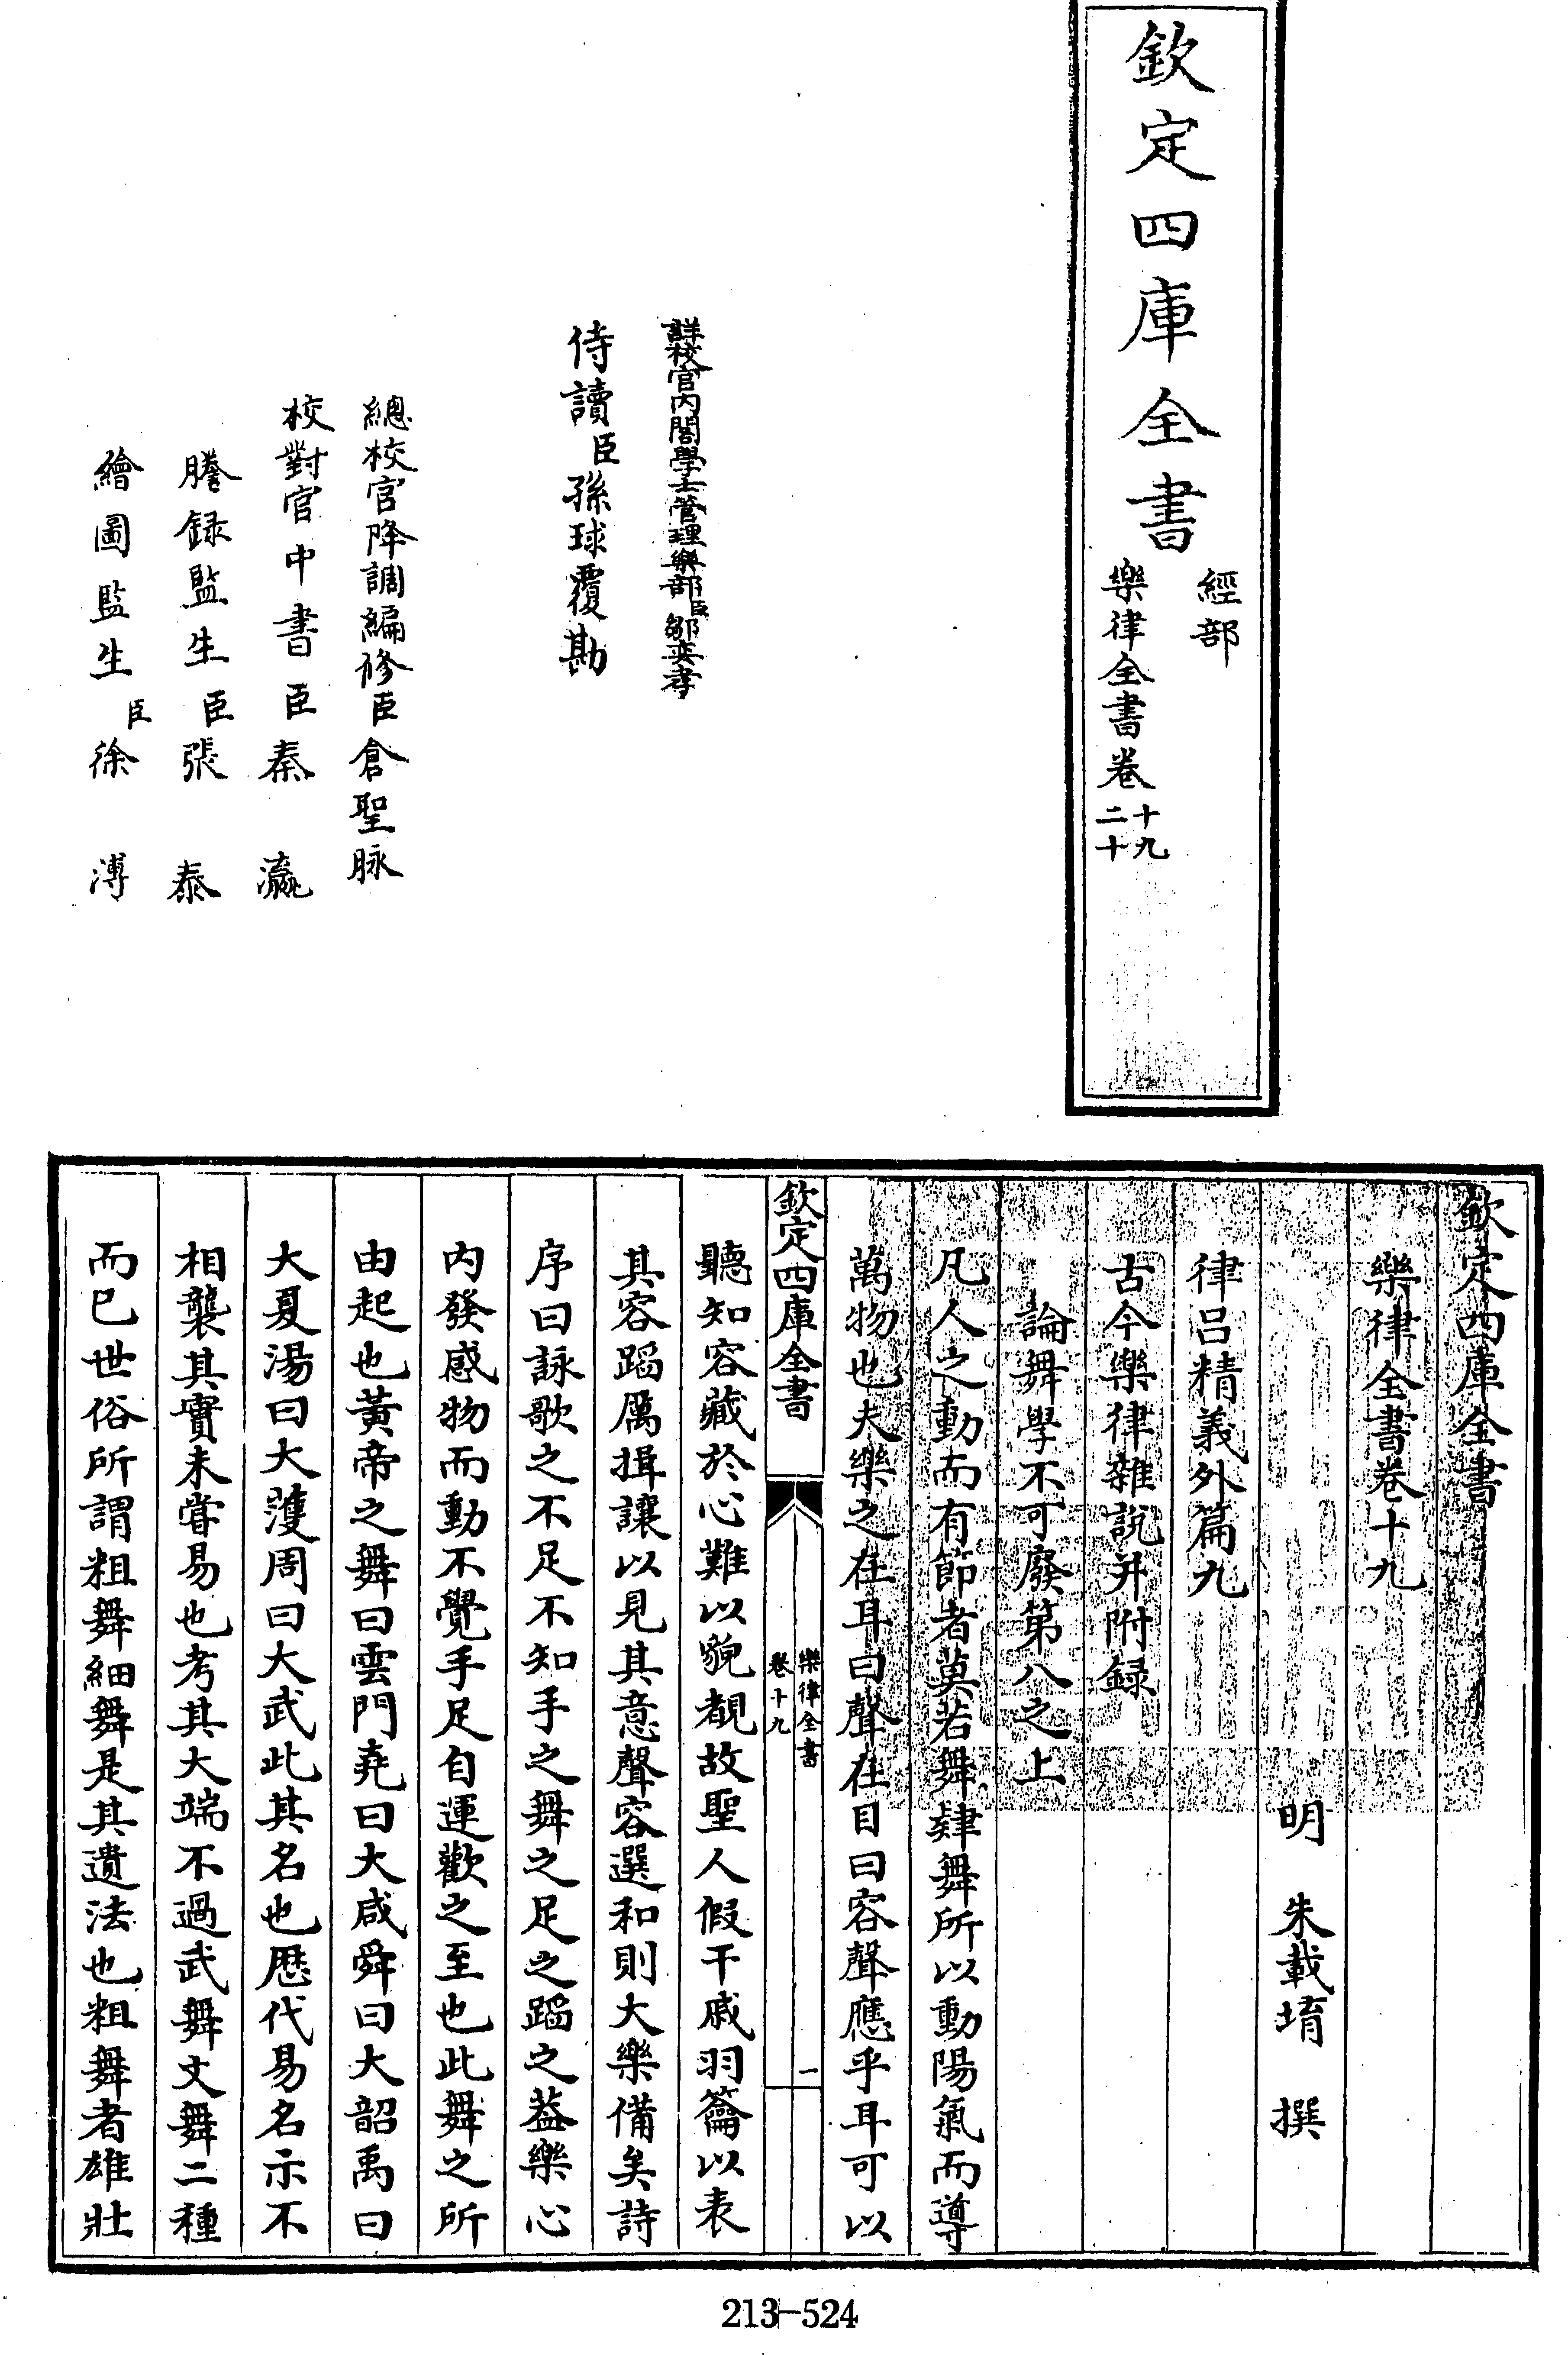 欽定四庫全書
經部
樂律全書卷
十九
二十
詳校官內閣學士管理樂部臣鄒奕孝
侍讀臣孫球覆勘
總校官降調編修臣倉聖脉
校對官中書臣秦瀛
謄録監生臣張泰
繪圖監生臣徐溥
欽定四庫全書
樂律全書卷十九
明 朱載堉 撰
律吕精義外篇九
古今樂律雜説并附録
論舞學不可廢第八之上
凡人之動而有節者莫若舞肄舞所以動陽氣而導
萬物也夫樂之在耳曰聲在目曰容聲應乎耳可以
欽定四庫全書
樂律全書
卷十九
一
聽知容藏於心難以貌覩故聖人假干戚羽籥以表
其容蹈厲揖讓以見其意聲容選和則大樂備矣詩
序曰詠歌之不足不知手之舞之足之蹈之葢樂心
内發感物而動不覺手足自運歡之至也此舞之所
由起也黄帝之舞曰雲門堯曰大咸舜曰大韶禹曰
大夏湯曰大濩周曰大武此其名也歴代易名示不
相襲其實未甞易也考其大端不過武舞文舞二種
而已世俗所謂粗舞細舞是其遺法也粗舞者雄壯
213-524